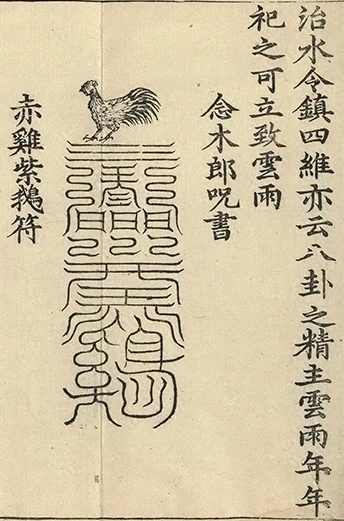 治水令鎮四維亦云八卦之精主雲雨年年
祀之可立致雲雨
念木郎呪書
赤雞紫鵝符